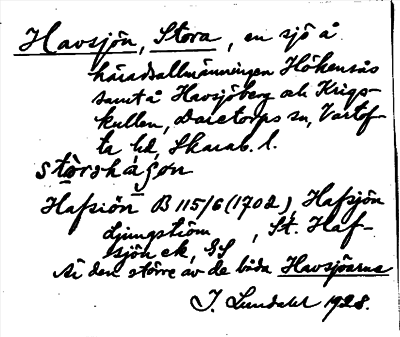 Havsjön, Stora, en sjö å
häradsallmänningen Hökensås
samt å Havsjöberg och Krigs-
kullen, Daretorps sn, Vartof-
ta hd, Skarab. l.
störshágon
Hafsiön B 115/6 (1702), Hafsjön
Ljungström, St. Haf-
sjön ek, GS
Är den större av de båda Havsjöarna
J. Lundahl 1928.